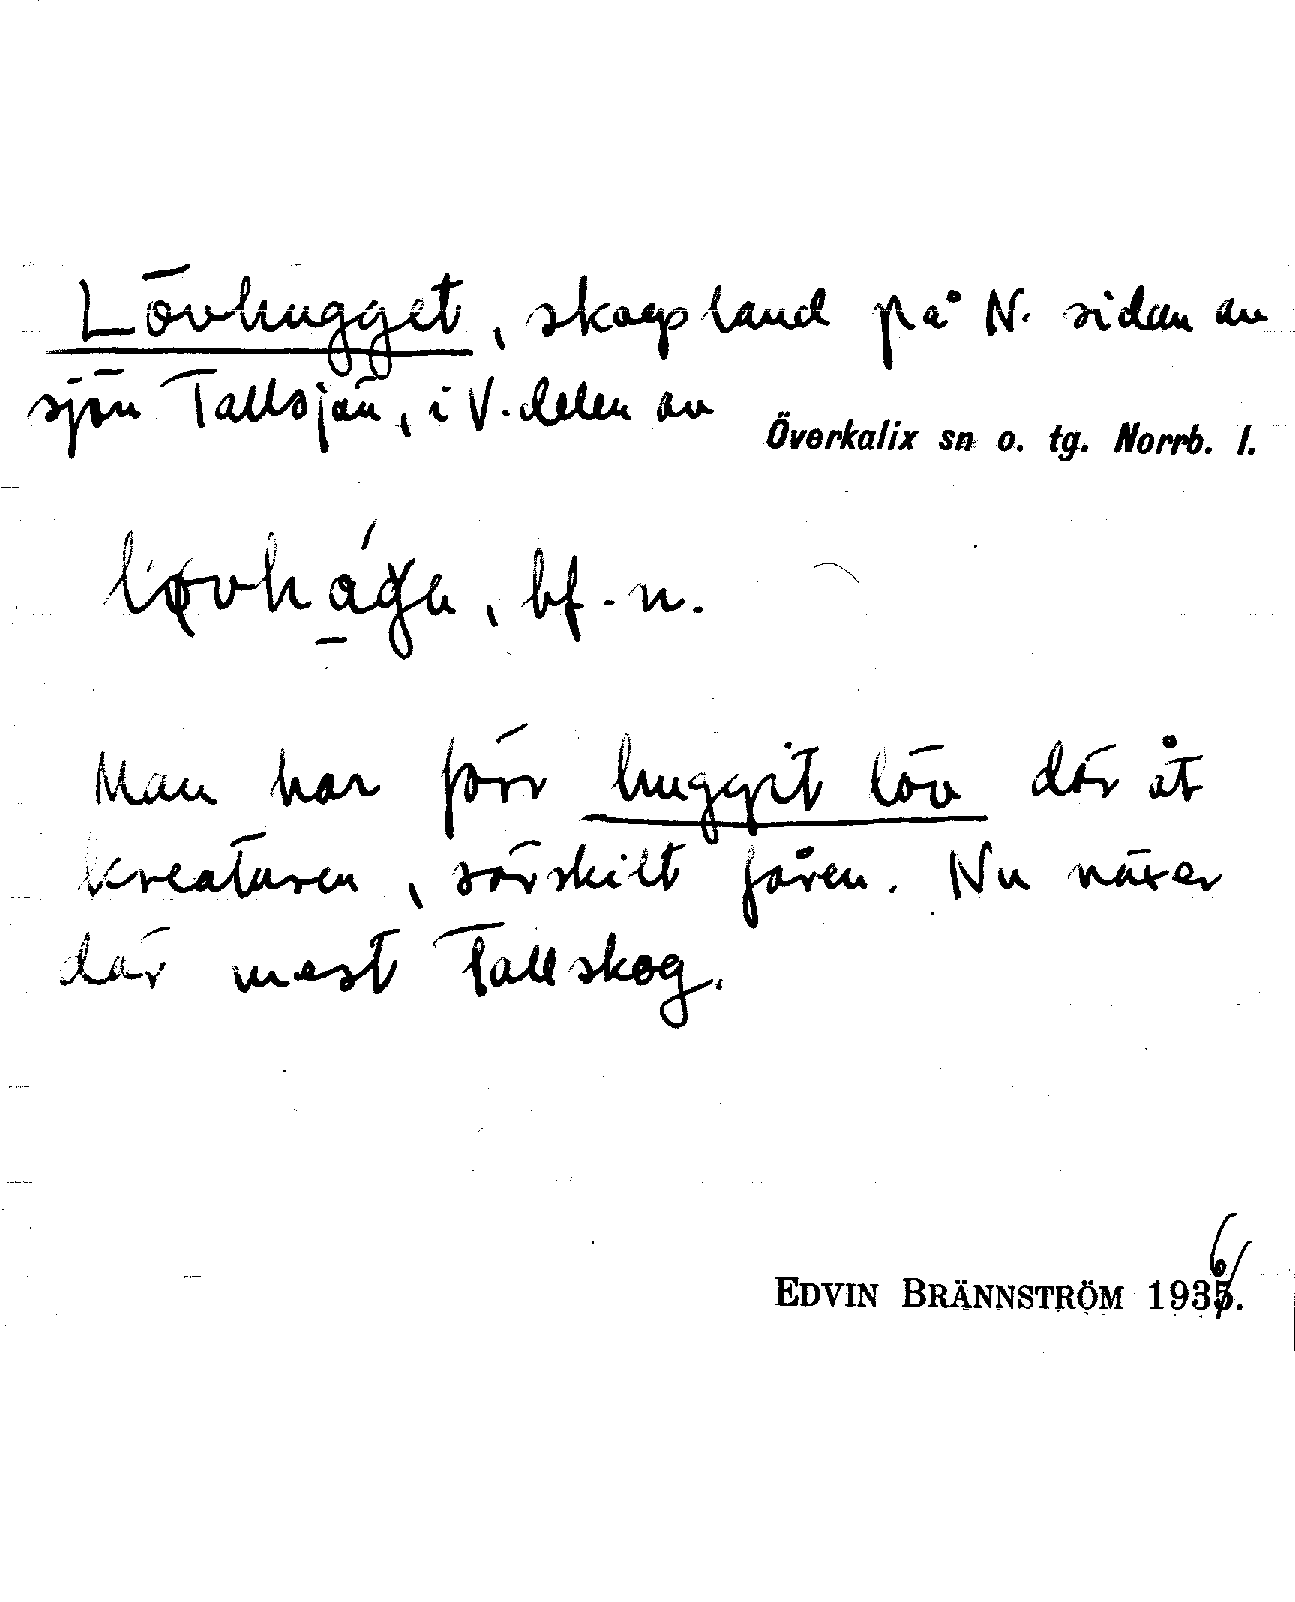 Lövhugget, skogsland på N. sidan av
sjön Tallsjön, i V. delen av
Överkalix sn o. tg. Norrb. l.
bf. n.
Man har förr huggit löv där åt
kreaturen, särskilt fåren. Nu växer
där mest Tallskog.
EDVIN BRÄNNSTRÖM 1936.